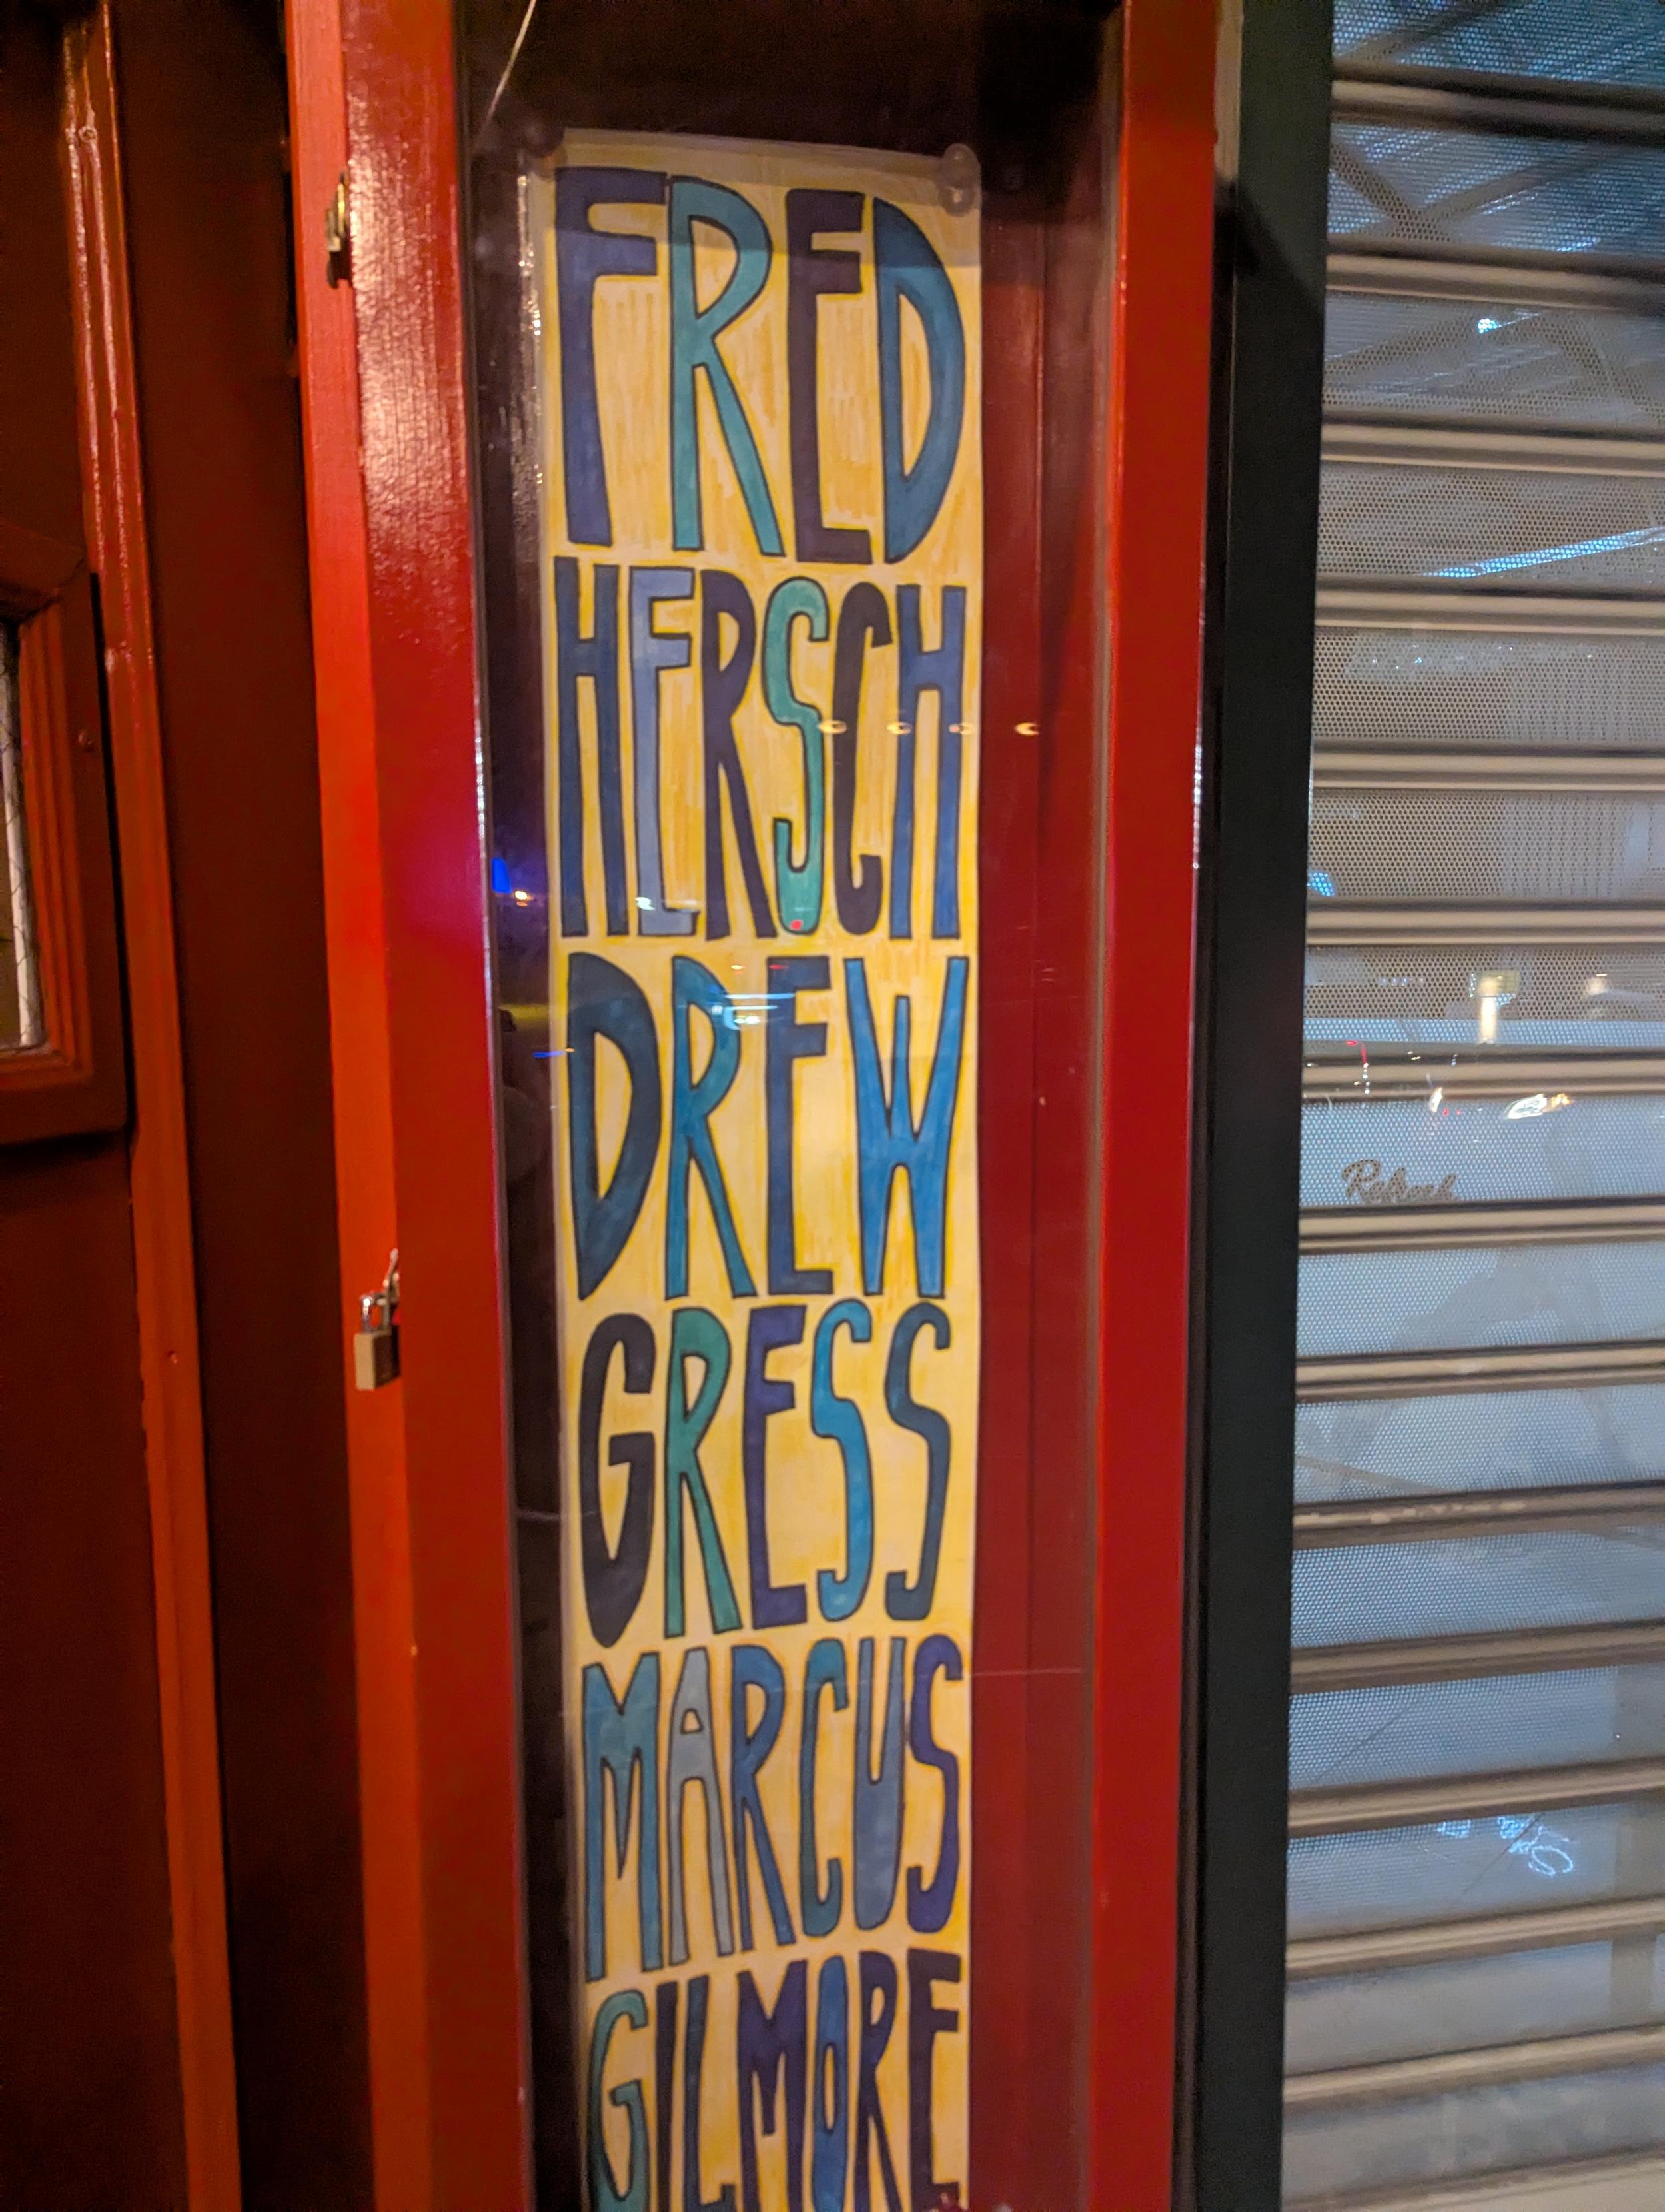 FRED
HERSCH
DREW
GRESS
MARCUS
GILMORE